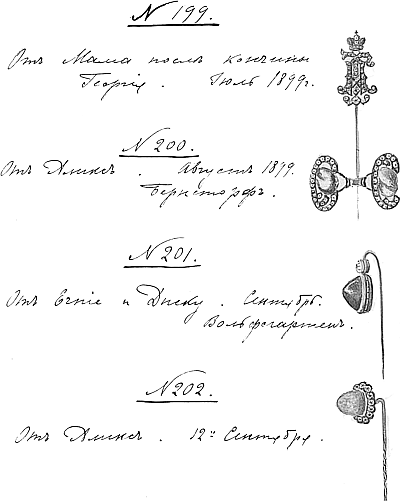 N 199.
Отъ Мама послѣ кончины
Георгія. Іюль 1899г.
N 200.
Отъ Аликсъ. Августъ 1899.
Бернсторфъ.
N 201.
Отъ Ерніе и Дики. Сентябрь.
Вольфсгартенъ.
N 202.
Отъ Аликсъ. 12го Сентября.